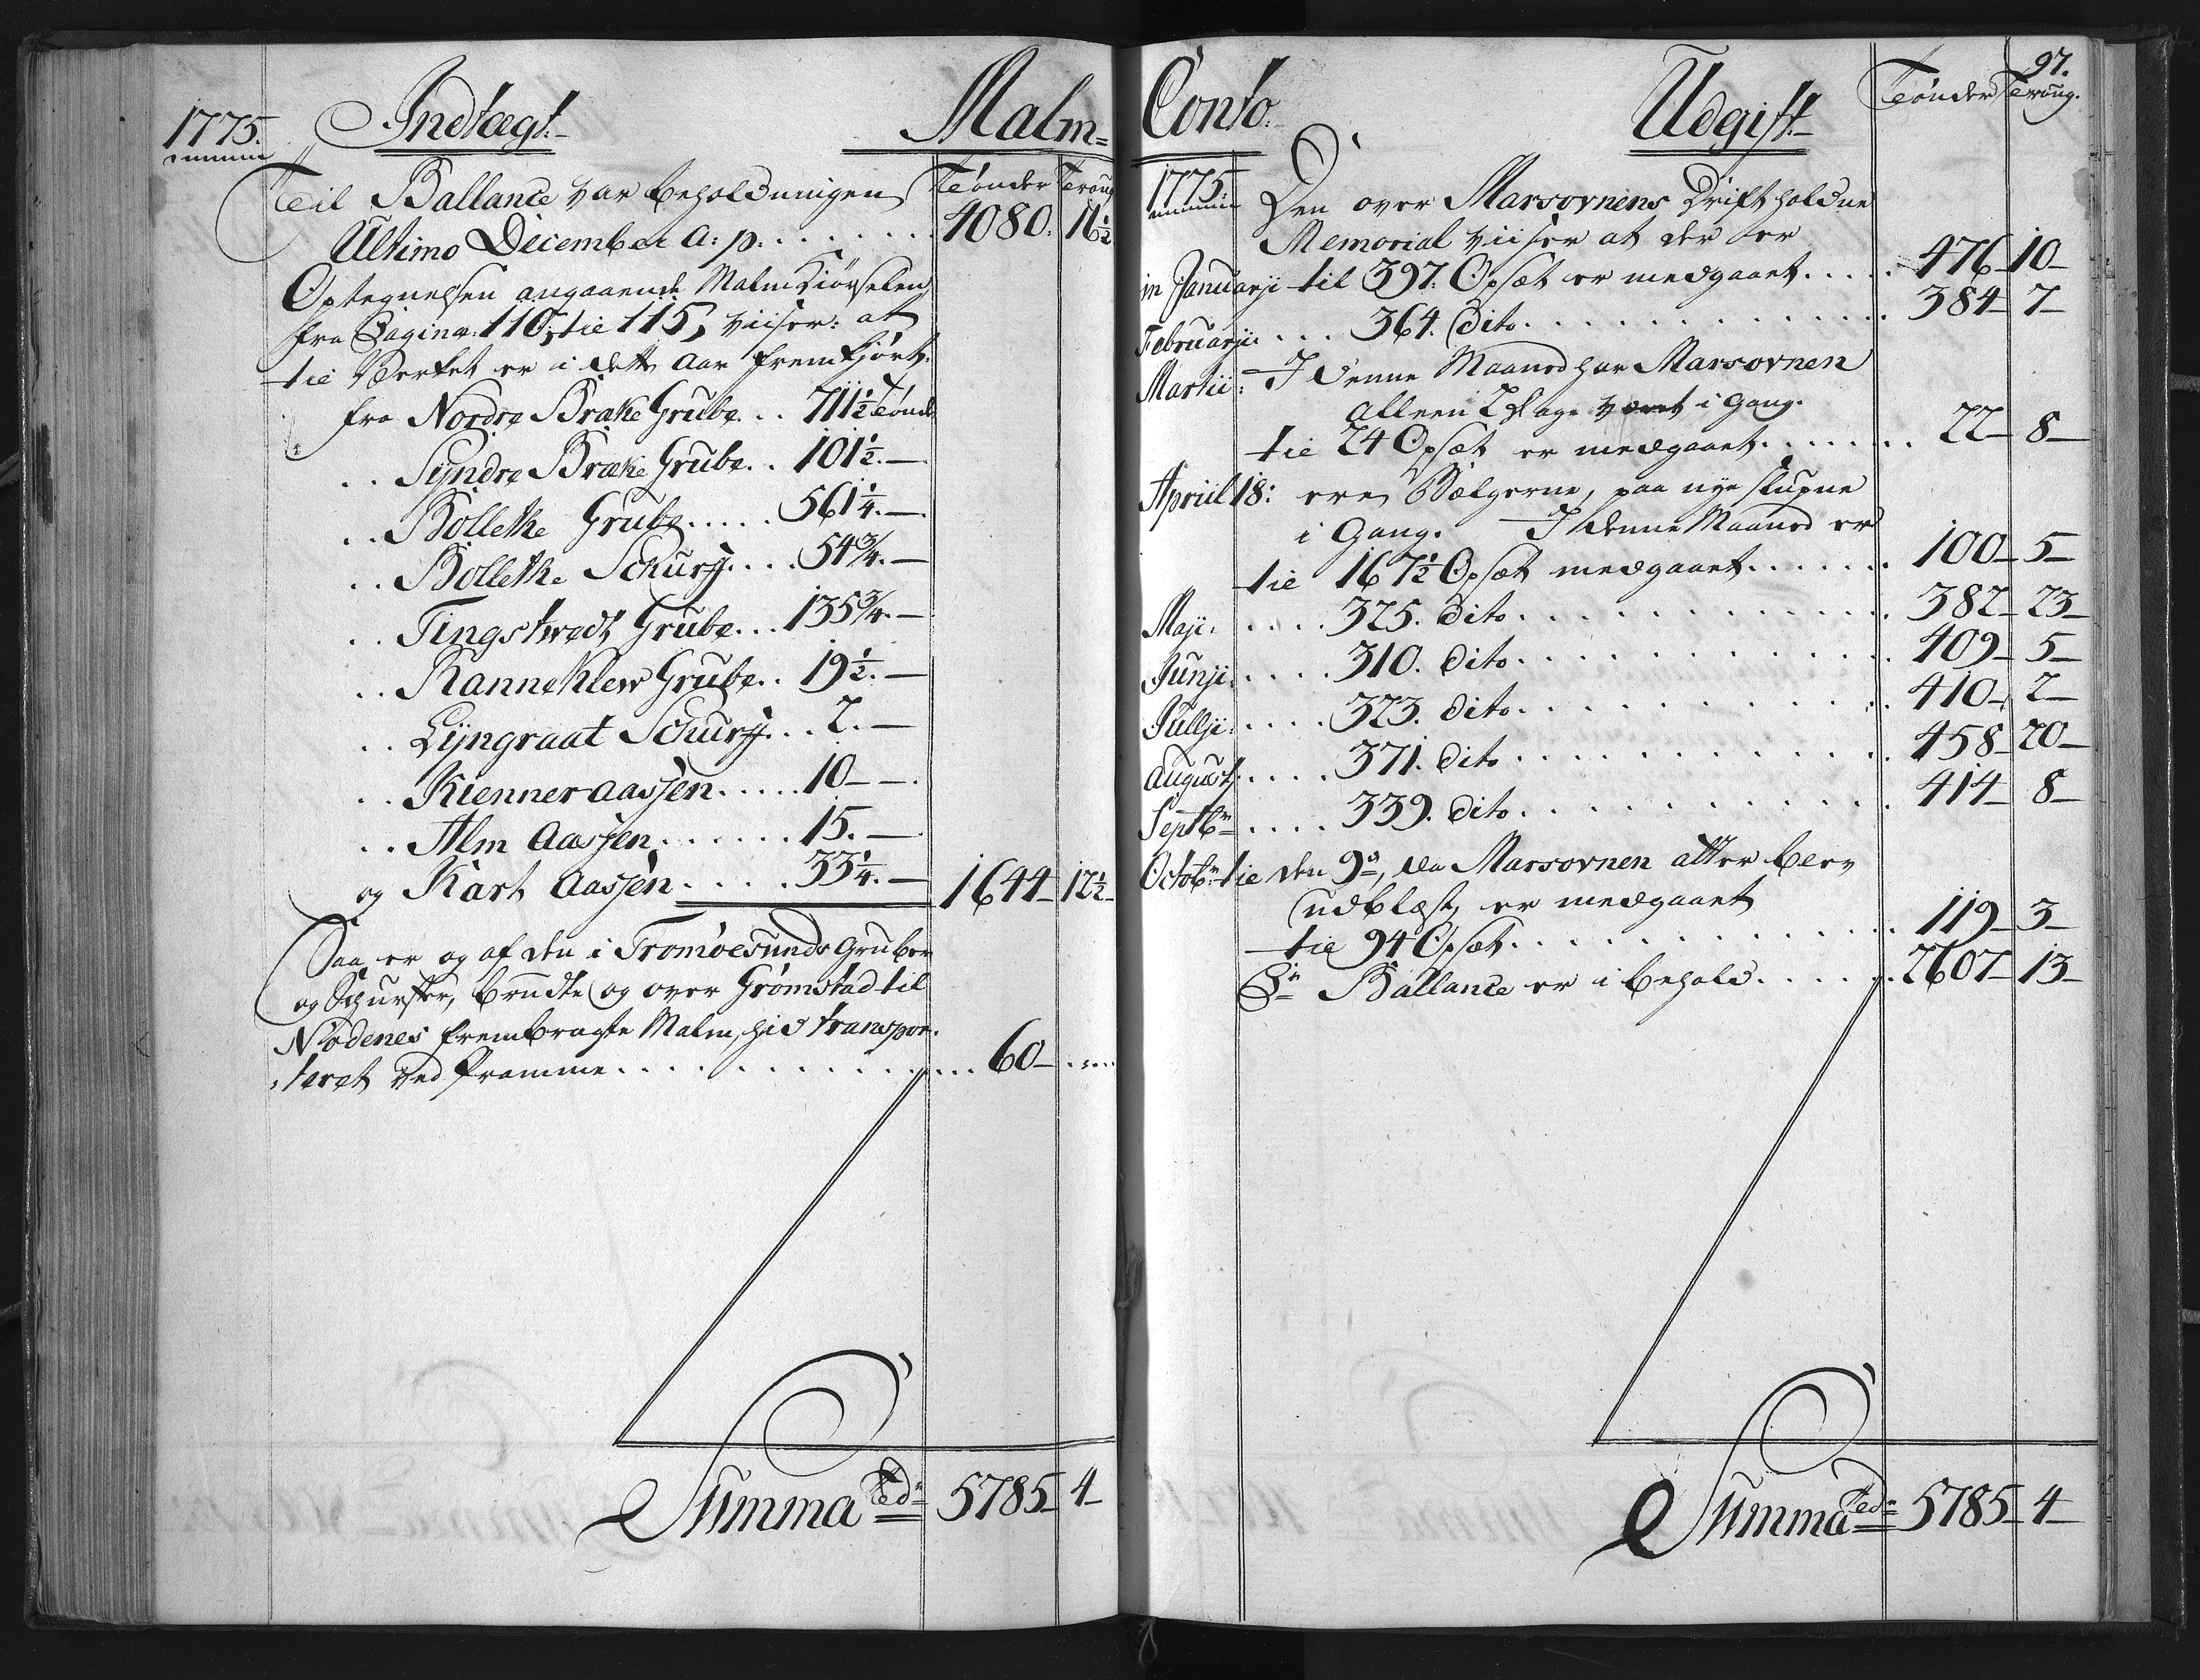 1775. Indtægt. Malm=
Til Ballance var beholdningen Tönder Troug
Ultimo December a: p. . . . . . . . 4080. 16½
Optegnelsen angaaende Malmkiørselen
fra Pagina: 110, til 115, viiser: at
til Verket er i dette Aar fremkjört:
fra Nordre Bræke Grube . . 711½ Tönd
. . Syndre Bræke Grube . . 101½.—
. . Bolletke Grube . . . . . 561¼.—
. . Bolletke Schurff . . . . 54¾.—
. . Tingstvedt Grube . . . 135¾.—
. . Ranneklew Grube . . 19½.—
. . Lyngraat Schurff . . . 2.—
. . Kienner aassen . . . . . 10—.
. . Alm Aassen . . . . . . 15.—
og Kart Aassen . . . . . 33¼.— 1644— 12½—
Saa er og af den i Tromöesunds Gruber
og Schurffer, brudte og over Grömstad til
Nödenes frembragte Malm, hid transpor-
teret ved Pramme . . . . . . . . . . . . 60—
Summa Tedr 5785— 4—
97.
Conto. Udgift Tönder Troug.
1775. Den over Marsovnens Drift holdne
Memorial viiser at der er
in Januarji til 397. Opsæt er medgaaet . . . . . 476— 10—
Februarji: . . . 364. Dito . . . . . . . . . . . . 384— 7—
Martii: I denne Maaned har Marsovnen
alleen 2 Dage været i Gang.
til 24 Opsæt er medgaaet . . . . . . . 22— 8—
Apriil 18: ere Bælgerne, paa nye slupne
i Gang. I denne Maaned er
til 167½ Opsæt medgaaet . . . . . . 100— 5—
Maji. . . . . 325. Dito . . . . . . . . . . . . 382— 23—
Junji. . . . . 310. Dito . . . . . . . . . . . . 409— 5—
Jullji . . . . . 323. Dito . . . . . . . . . . . . 410— 2—
August: . . . . 371. Dito . . . . . . . . . . . . 458— 20—
Septbr . . . . 339. Dito . . . . . . . . . . . . 414— 8—
Octobr: til den 9de, da Marsovnen atter blev
udblæst, er medgaaet
til 94 Opsæt . . . . . . . . . . . . . . 119— 3—
Pr Ballance er i behold . . . . . . 2607— 13—
Summa Tedr 5785— 4—